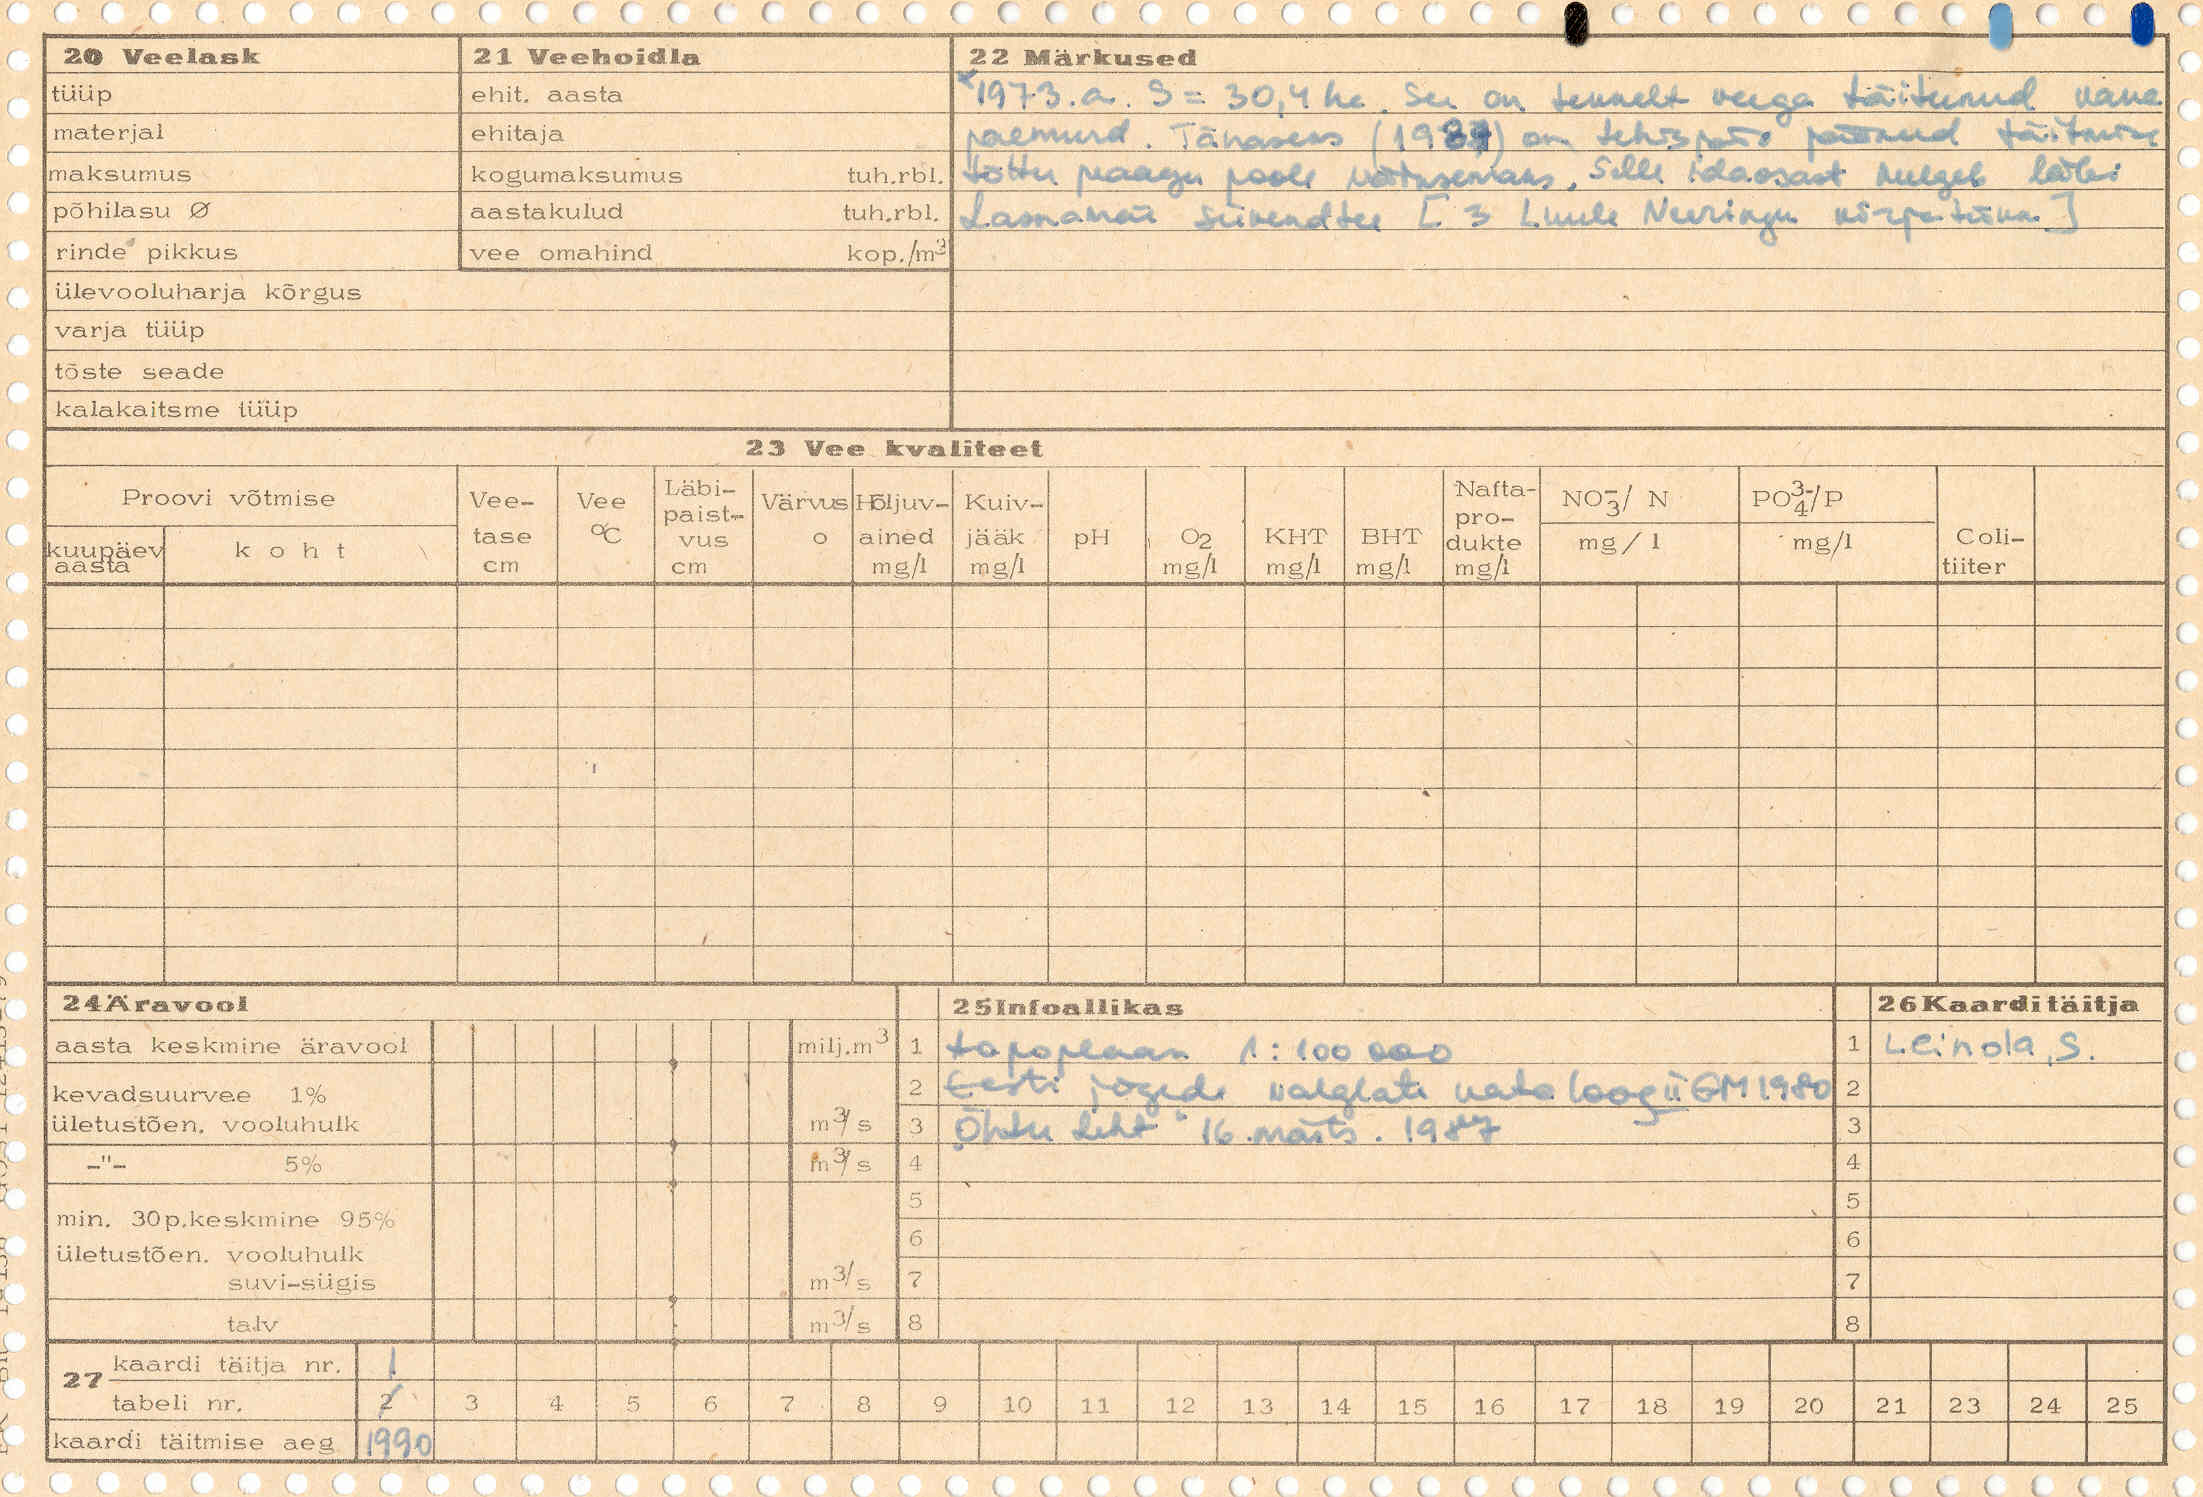 20 Veelask
tüüp
materjal
maksumus
põhilasu Ø
rinde pikkus
ülevooluharja kõrgus
varja tüüp
tõste seade
kalakaitsme tüüp
21 Veehoidla
ehit. aasta
ehitaja
kogumaksumus tuh.rbl.
aastakulud tuh.rbl.
vee omahind kop./m³
22 Märkused
x 1973.a. S = 30,4 ha. See on tekkelt veega täitunud vana
paemurd. Tänaseks (1987) on tehisjärv jäänud täitmise
tõttu peaaegu poole väiksemaks. Selle idaosast kulgeb läbi
Lasnamäe süvendtee [3 Luule Neeringu]
23 Vee kvaliteet
Proovi võtmise
kuupäev aasta
koht
Vee-tase cm
Vee °C
Läbi-paist-vus cm
Värvus o
Hõljuv-ained mg/l
Kuiv-jääk mg/l
pH
O2 mg/l
KHT mg/l
BHT mg/l
Nafta-pro-dukte mg/l
NO3-/ N mg/l
PO4 3-/P mg/l
Coli-tiiter
24 Äravool
aasta keskmine äravool milj.m³
kevadsuurvee 1%
ületustõen. vooluhulk m³/s
-"- 5% m³/s
min. 30p.keskmine 95%
ületustõen. vooluhulk
suvi-sügis m³/s
talv m³/s
25 Infoallikas
1 topoplaan 1:100 000
2 Eesti jõgede valglate kataloog II EM 1980
3 "Õhtuleht" 16. märts. 1987
4
5
6
7
8
26 Kaardi täitja
1 Leinola, S.
2
3
4
5
6
7
8
27 kaardi täitja nr. 1
tabeli nr. 2 3 4 5 6 7 8 9 10 11 12 13 14 15 16 17 18 19 20 21 23 24 25
kaardi täitmise aeg 1990